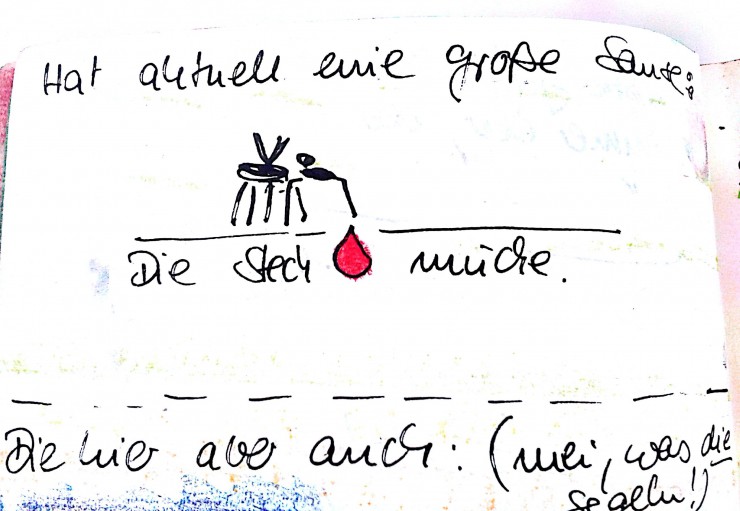 Hat aktuell eine große Sause:
Die Stech mücke.
Die hier aber auch: (mei, was die
segeln!)